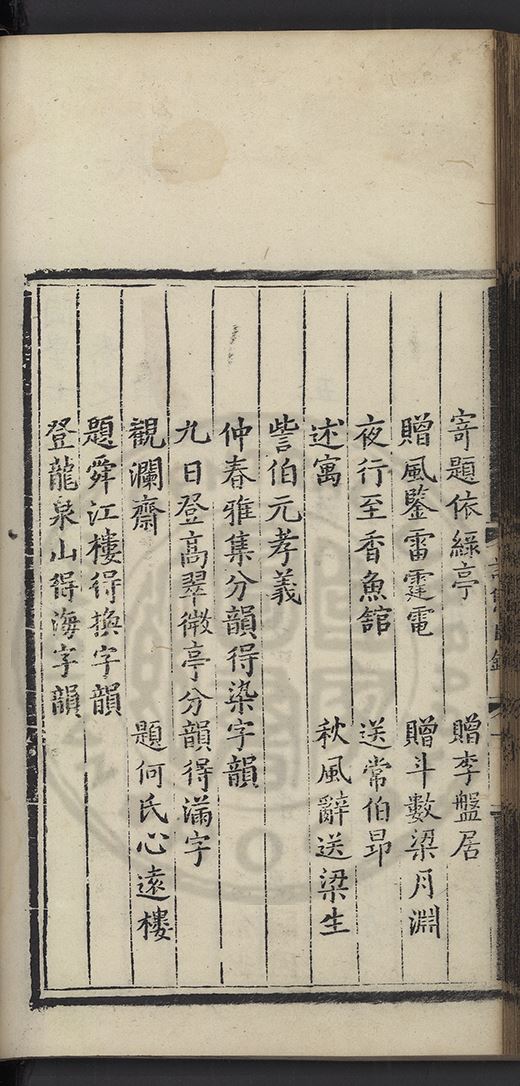 寄題依緑亭 贈李盤居
贈風鑒雷霆電 贈斗數梁月淵
夜行至香魚舘 送常伯昂
述寓 秋風辭送梁生
訾伯元孝義
仲春雅集分韻得染字韻
九日登高翠微亭分韻得滿字
觀瀾齋 題何氏心遠樓
題舜江樓得換字韻
登龍泉山得海字韻